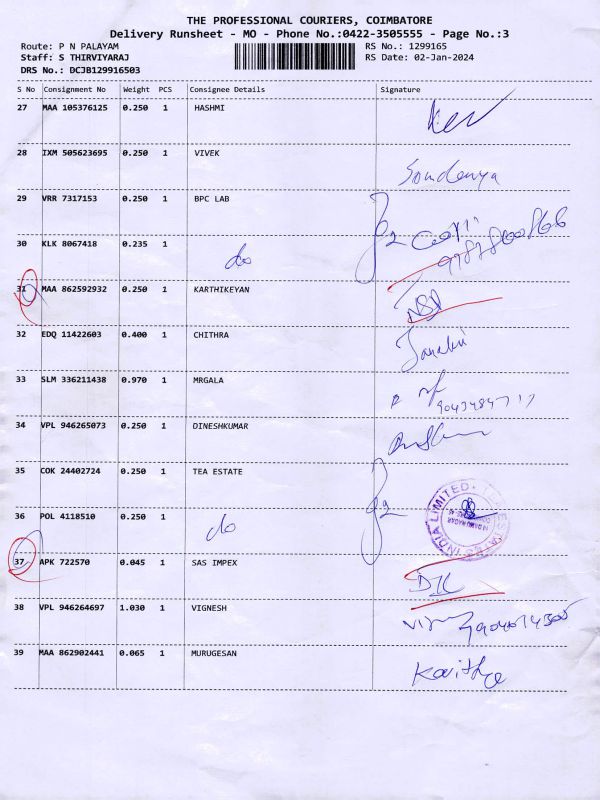 THE PROFESSIONAL COURIERS, COIMBATORE
Delivery Runsheet - MO - Phone No.:0422-3505555 - Page No.:3
Route: P N PALAYAM RS No.: 1299165
Staff: S THIRVIYARAJ RS Date: 02-Jan-2024
DRS No.: DCJB129916503
S No Consignment No Weight PCS Consignee Details Signature
27 MAA 105376125 0.250 1 HASHMI
28 IXM 505623695 0.250 1 VIVEK
29 VRR 7317153 0.250 1 BPC LAB
30 KLK 8067418 0.235 1 do
31 MAA 862592932 0.250 1 KARTHIKEYAN
32 EDQ 11422603 0.400 1 CHITHRA Janaki
33 SLM 336211438 0.970 1 MRGALA
34 VPL 946265073 0.250 1 DINESHKUMAR
35 COK 24402724 0.250 1 TEA ESTATE
36 POL 4118510 0.250 1 do
INDIA LIMITED
37 APK 722570 0.045 1 SAS IMPEX DIL
38 VPL 946264697 1.030 1 VIGNESH
39 MAA 862902441 0.065 1 MURUGESAN Kavitha